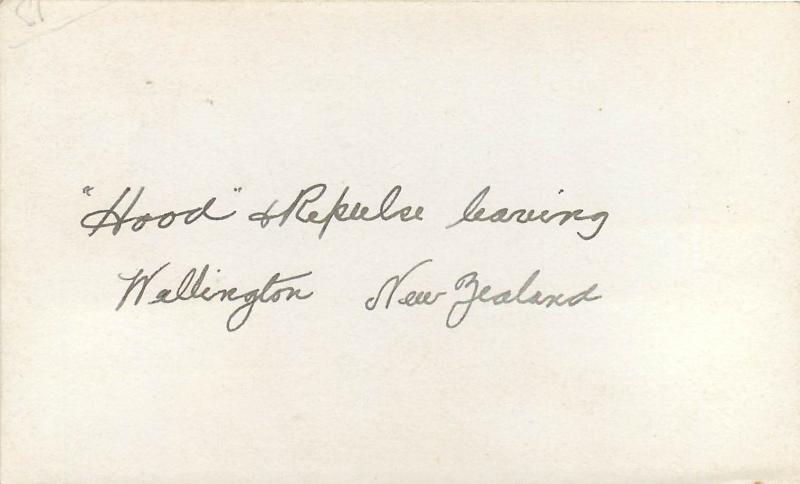 "Hood" & Repulse leaving
Wallington New Zealand